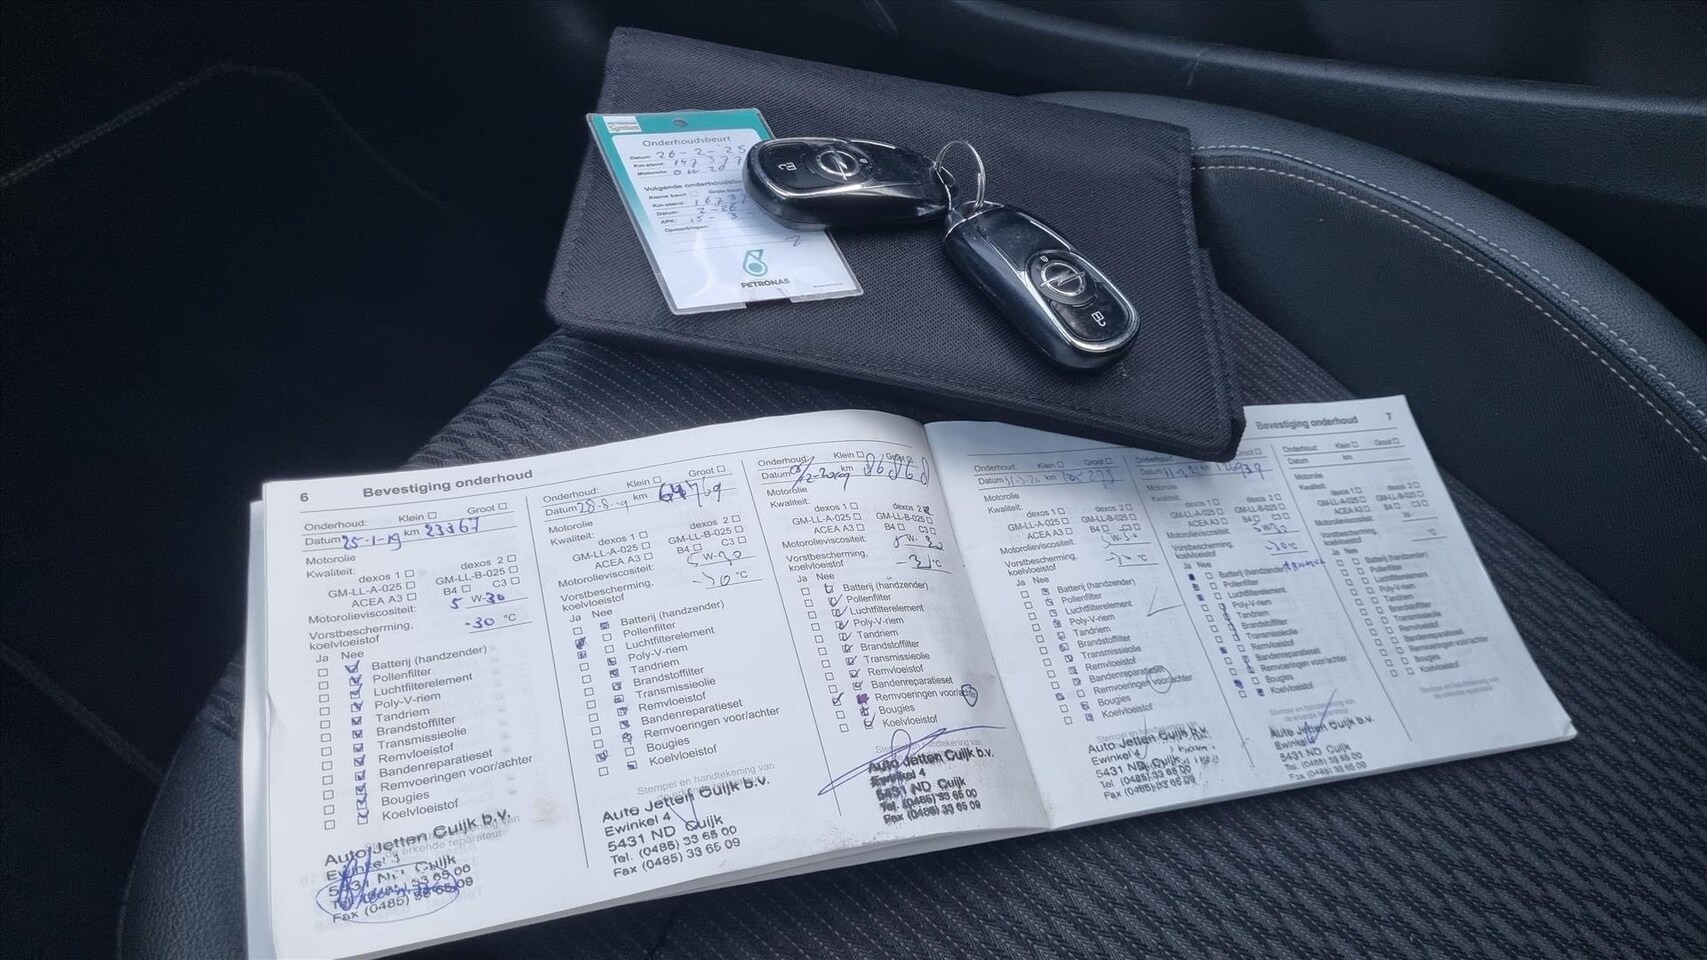 PETRONAS
Syntium
Onderhoudsbeurt
Datum: 26-2-25
Km-stand: 147377
Motorolie: 0W20
Volgende onderhoudsbeurt
Kleine beurt
Km-stand:
Datum: 2-26
APK: 15-3
Opmerkingen:
PETRONAS
6 Bevestiging onderhoud
Onderhoud: Klein Groot
Datum 25-1-19 km 23367
Motorolie
Kwaliteit: dexos 1 dexos 2
GM-LL-A-025 GM-LL-B-025
ACEA A3 B4 C3
Motorolieviscositeit: 5 W-30
Vorstbescherming, koelvloeistof -30 °C
Ja Nee
Batterij (handzender)
Pollenfilter
Luchtfilterelement
Poly-V-riem
Tandriem
Brandstoffilter
Transmissieolie
Remvloeistof
Bandenreparatieset
Remvoeringen voor/achter
Bougies
Koelvloeistof
Auto Jetten Cuijk b.v.
Ewinkel 4
5431 ND Cuijk
Tel. (0485) 33 65 00
Fax (0485) 33 65 09
Onderhoud: Klein Groot
Datum 28-8-19 km 64769
Motorolie
Kwaliteit: dexos 1 dexos 2
GM-LL-A-025 GM-LL-B-025
ACEA A3 B4 C3
Motorolieviscositeit: 5 W-30
Vorstbescherming, koelvloeistof °C
Ja Nee
Batterij (handzender)
Pollenfilter
Luchtfilterelement
Poly-V-riem
Tandriem
Brandstoffilter
Transmissieolie
Remvloeistof
Bandenreparatieset
Remvoeringen voor/achter
Bougies
Koelvloeistof
Stempel en handtekening van
Auto Jetten Cuijk b.v.
Ewinkel 4
5431 ND Cuijk
Tel. (0485) 33 65 00
Fax (0485) 33 65 09
Onderhoud: Klein Groot
Datum km 86868
Motorolie
Kwaliteit: dexos 1 dexos 2
GM-LL-A-025 GM-LL-B-025
ACEA A3 B4 C3
Motorolieviscositeit: 5 W-30
Vorstbescherming, koelvloeistof °C
Ja Nee
Batterij (handzender)
Pollenfilter
Luchtfilterelement
Poly-V-riem
Tandriem
Brandstoffilter
Transmissieolie
Remvloeistof
Bandenreparatieset
Remvoeringen voor/achter
Bougies
Koelvloeistof
Stempel en handtekening van
Auto Jetten Cuijk b.v.
Ewinkel 4
5431 ND Cuijk
Tel. (0485) 33 65 00
Fax (0485) 33 65 09
Bevestiging onderhoud 7
Onderhoud: Klein Groot
Datum km
Motorolie
Kwaliteit: dexos 1 dexos 2
GM-LL-A-025 GM-LL-B-025
ACEA A3 B4 C3
Motorolieviscositeit:
Vorstbescherming, koelvloeistof °C
Ja Nee
Batterij (handzender)
Pollenfilter
Luchtfilterelement
Poly-V-riem
Tandriem
Brandstoffilter
Transmissieolie
Remvloeistof
Bandenreparatieset
Remvoeringen voor/achter
Bougies
Koelvloeistof
Auto Jetten Cuijk b.v.
Ewinkel 4
5431 ND Cuijk
Tel. (0485) 33 65 00
Fax (0485) 33 65 09
Onderhoud: Klein Groot
Datum km 126939
Motorolie
Kwaliteit: dexos 1 dexos 2
GM-LL-A-025 GM-LL-B-025
ACEA A3 B4 C3
Motorolieviscositeit:
Vorstbescherming, koelvloeistof °C
Ja Nee
Batterij (handzender)
Pollenfilter
Luchtfilterelement
Poly-V-riem
Tandriem
Brandstoffilter
Transmissieolie
Remvloeistof
Bandenreparatieset
Remvoeringen voor/achter
Bougies
Koelvloeistof
Auto Jetten Cuijk b.v.
Ewinkel 4
5431 ND Cuijk
Tel. (0485) 33 65 00
Fax (0485) 33 65 09
Onderhoud: Klein Groot
Datum km
Motorolie
Kwaliteit: dexos 1 dexos 2
GM-LL-A-025 GM-LL-B-025
ACEA A3 B4 C3
Motorolieviscositeit: W-
Vorstbescherming, koelvloeistof °C
Ja Nee
Batterij (handzender)
Pollenfilter
Luchtfilterelement
Poly-V-riem
Tandriem
Brandstoffilter
Transmissieolie
Remvloeistof
Bandenreparatieset
Remvoeringen voor/achter
Bougies
Koelvloeistof
Stempel en handtekening van
de erkende reparateur